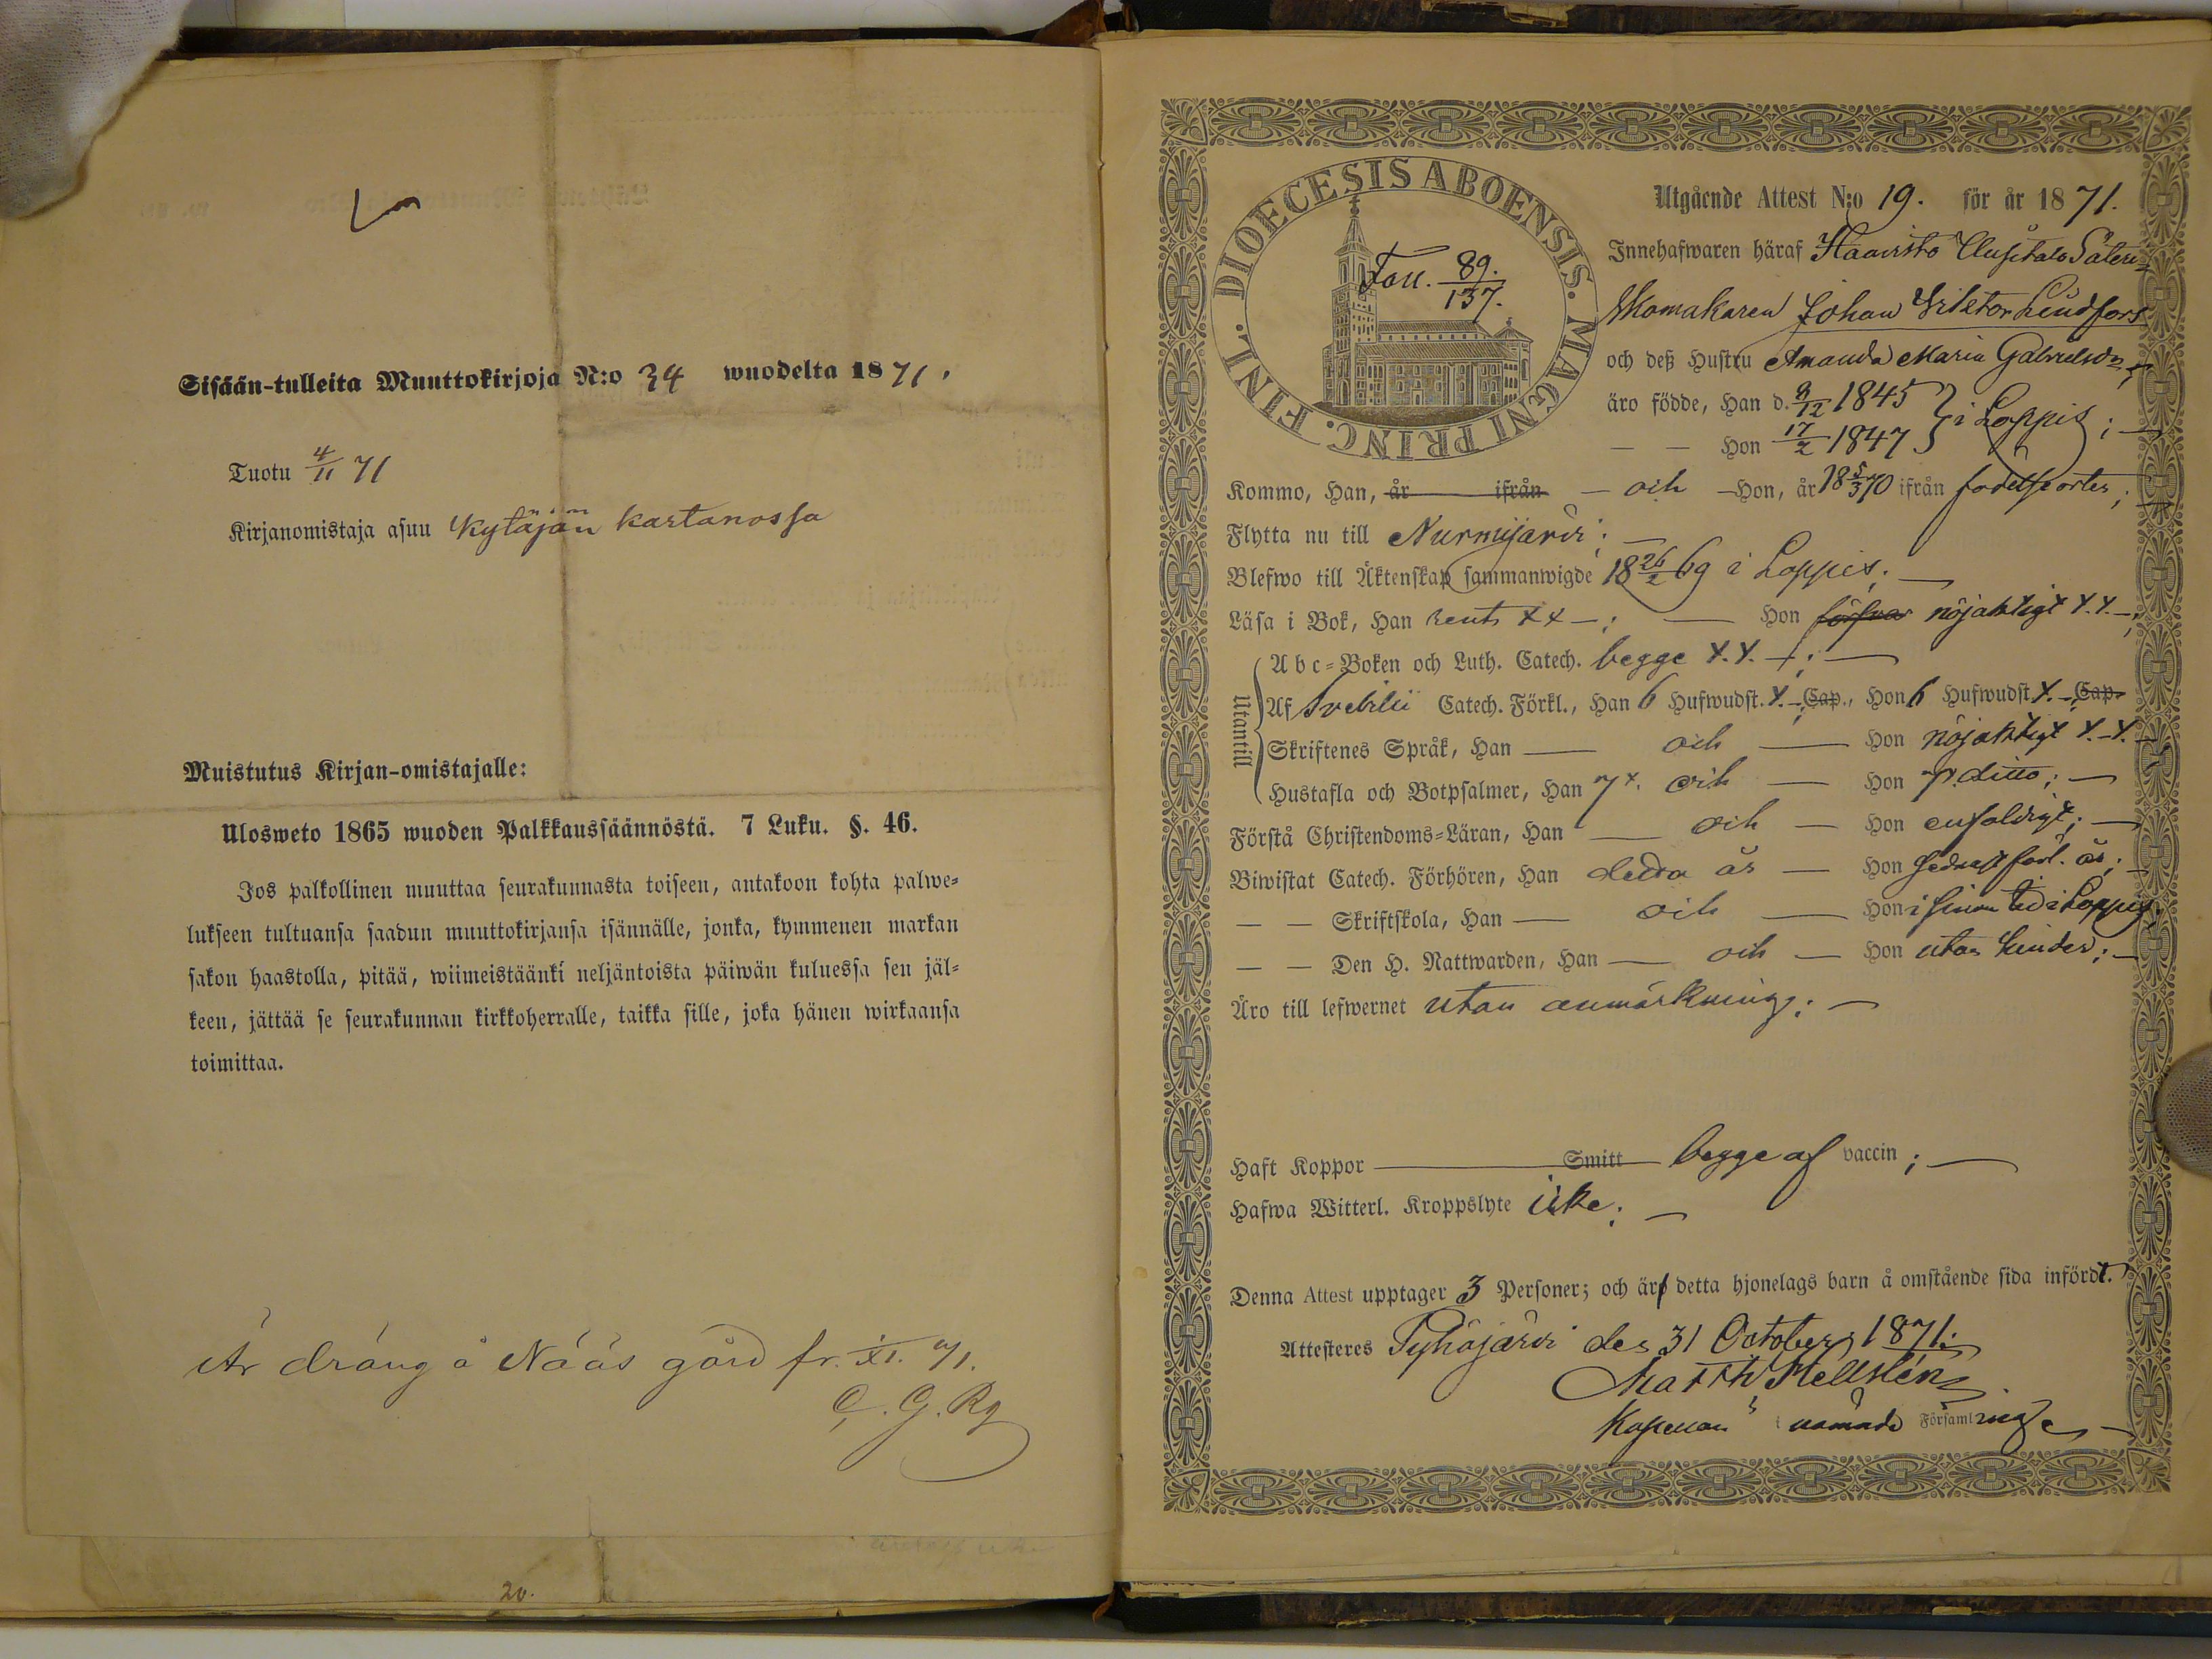 Sisään-tulleita Muuttokirjoja N:o 34 wuodelta 1871.
Tuotu 4/11 71
Kirjanomistaja asuu Kytäjän kartanossa
Muistutus Kirjan-omistajalle:
Ulosweto 1865 wuoden Palkkaussäännöstä. 7 Luku. §. 46.
Jos palkollinen muuttaa seurakunnasta toiseen, antakoon kohta palwe=
lukseen tultuansa saadun muuttokirjansa isännälle, jonka, kymmenen markan
sakon haastolla, pitää, wiimeistäänki neljäntoista päiwän kuluessa sen jäl=
keen, jättää se seurakunnan kirkkoherralle, taikka sille, joka hänen wirkaansa
toimittaa.
Är dräng å Nääs gård fr. 1/XI. 71.
C. G. Rg
20.
DIOECESIS ABOENSIS. MAGNI PRINC. FINL.
Foll. 89./137.
Utgående Attest N:o 19. för år 1871.
Innehafwaren häraf Haavisto Säteri=
Skomakaren Johan Viktor Lindfors
och deß Hustru Amanda Maria Gabrielsdr
äro födde, Han d. 9/12 1845 } i Loppis; —
— — Hon 17/2 1847
Kommo, Han, år ifrån — och — Hon, år 18 5/3 70 ifrån födelseorten;
Flytta nu till Nurmijärvi; —
Blefwo till Äktenskap sammanwigde 18 26/2 69 i Loppis; —
Läsa i Bok, Han rent x x —; — Hon försvar nöjaktigt x. x. —;
Utantill
Abc=Boken och Luth. Catech. begge x. x. —; —
Af Svebilii Catech. Förkl., Han 6 Hufwudst. x. —; Cap., Hon 6 Hufwudst x. — Cap.
Skriftenes Språk, Han — och — Hon nöjaktigt x. — x. —
Hustafla och Botpsalmer, Han 7 x. och — Hon ditto; —
Förstå Christendoms=Läran, Han — och — Hon enfaldigt; —
Biwistat Catech. Förhören, Han detta år — Hon sednast förl. år; —
— — Skriftskola, Han — och — Hon i sinom tid i Loppis;
— — Den H. Nattwarden, Han — och — Hon utan hinder; —
Äro till lefwernet utan anmärkning; —
Haft Koppor — Smitt begge af vaccin; —
Hafwa Witterl. Kroppslyte icke; —
Denna Attest upptager 3 Personer; och är detta hjonelags barn å omstående sida infördt.
Attesteres Pyhäjärvi den 31 October 1871.
Matth Hellstén
Kapellan i nämnde Församlinge —